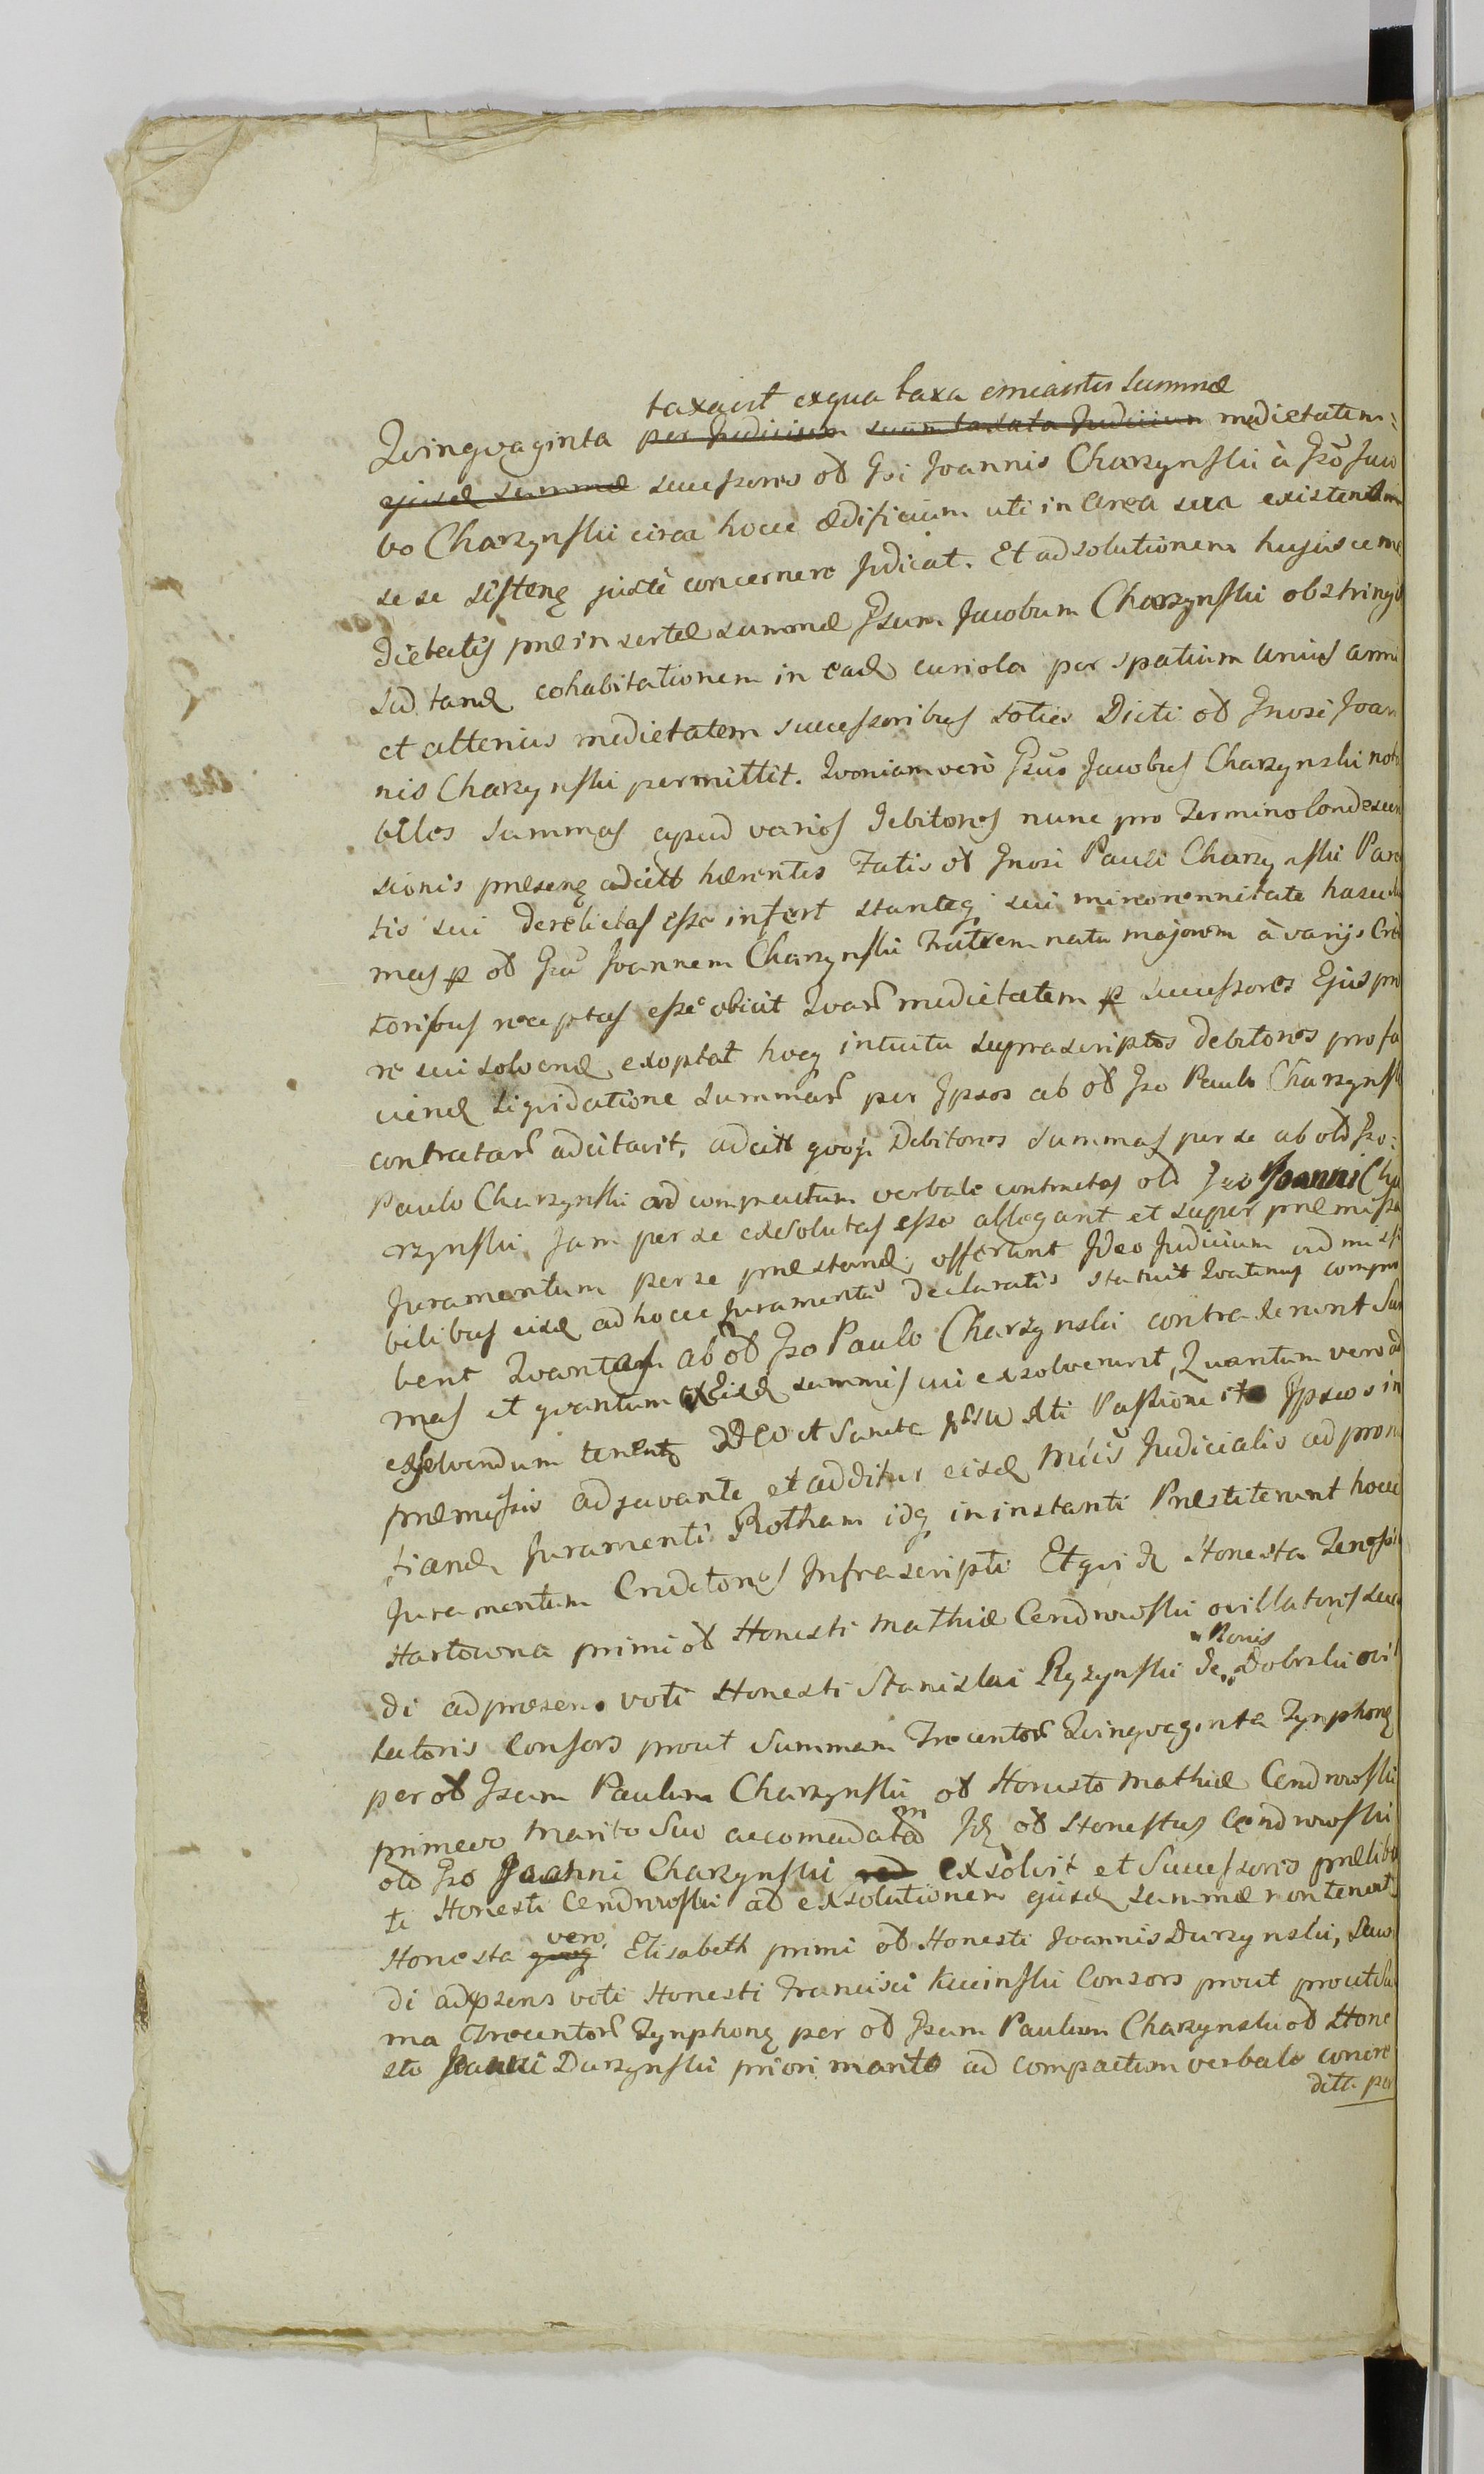 taxavit exqua taxa emeantis summæ
Qvingvaginta per Judicium suum taxata Judicium medietatem:
ejusd summæ successores od Gsi Joannis Charzynski à Gso Jaco
bo Charzynski circa hocce ædificium uti in area sua existentem
se se sisten juste concernere Judicat. Et ad solutionem hujusce me
dietatis præinsertæ summæ Gsum Jacobum Charzynski obstringit
sed tand cohabitationem in ead curiola per spatium unius anni
et alterius medietatem successoribus toties Dicti od Gnosi Joan
nis Charzynski permittit. Qvoniam verò Gsus Jacobus Charzynski nota
biles summas apud varios Debitores nunc pro Termino Condescen
sionis præsen adcitt hærentes Fatis od Gnosi Pauli Charzynski Paren
tis sui derelictas esse infert stanteq sui minorennitate hasce
mas p od Gsu Joannem Charzynski Fratrem natu majorem à varijs Cre
toribus receptas esse obicit Qvar medietatem p successores Ejus pro
re sui solvend exoptat hocq intuitu suprascriptos Debitores pro fa
ciend liqvidatione summar per Ipsos ab od Gso Paulo Charzynski
contractar adcitavit, adcitt qvoq Debitores summas per se ab od Gso:
Paulo Charzynski ad compactum verbale contractas od Gso Joanni Cha
rzynski Jam per se exsolutas esse allegant et super præmissa
Juramentum per se præstand offerunt Ideo Judicium admissi
bilibus eisd ad hocce Juramentũ declaratis statuit Qvatenus compro
bent Qvantas ab od Gso Paulo Charzynski contraxerunt Sum
mas et qvantum ex Eisd summis cui exsolverunt, Quantum vero ad
exsolvendum tenent DEO et Sancta Jesu Xti Passione ita Ipsos in
præmissis adjuvante et additur eisd Miĩs Judicialis ad pron
tiand Juramenti Rotham idq in instanti Præstiterunt hocce
Juramentum Creditores Infrascripti Et qvid Honesta
Hartowna primi od Honesti Mathiæ Cendrowski ovillatoris secun
di ad præsens voti Honesti Stanislai Ryzynski de Bonis Dobrski ovil
latoris Consors prout Summam Trecentor Qvingvaginta Tynphon
per od Gsum Paulum Charzynski od Honesto Mathiæ Cendrowski
primevo Marito Suo accomodatam Id od Honestus Cendrowski
od Gso Joanni Charzynski exsolvit et Successores præliba
ti Honesti Cendrowski ad exsolutionem ejusd summæ non tenent
Honesta qvoq vero Elisabeth primi od Honesti Joannis Durzynski, Secun
di ad psens voti Honesti Francisci Kucinski Consors prout prout Su
ma Trecentor Tynphon per od Gsum Paulum Charzynski od Hone
sto Joanni Durzynski priori marito ad compactum verbale concre
ditt. per